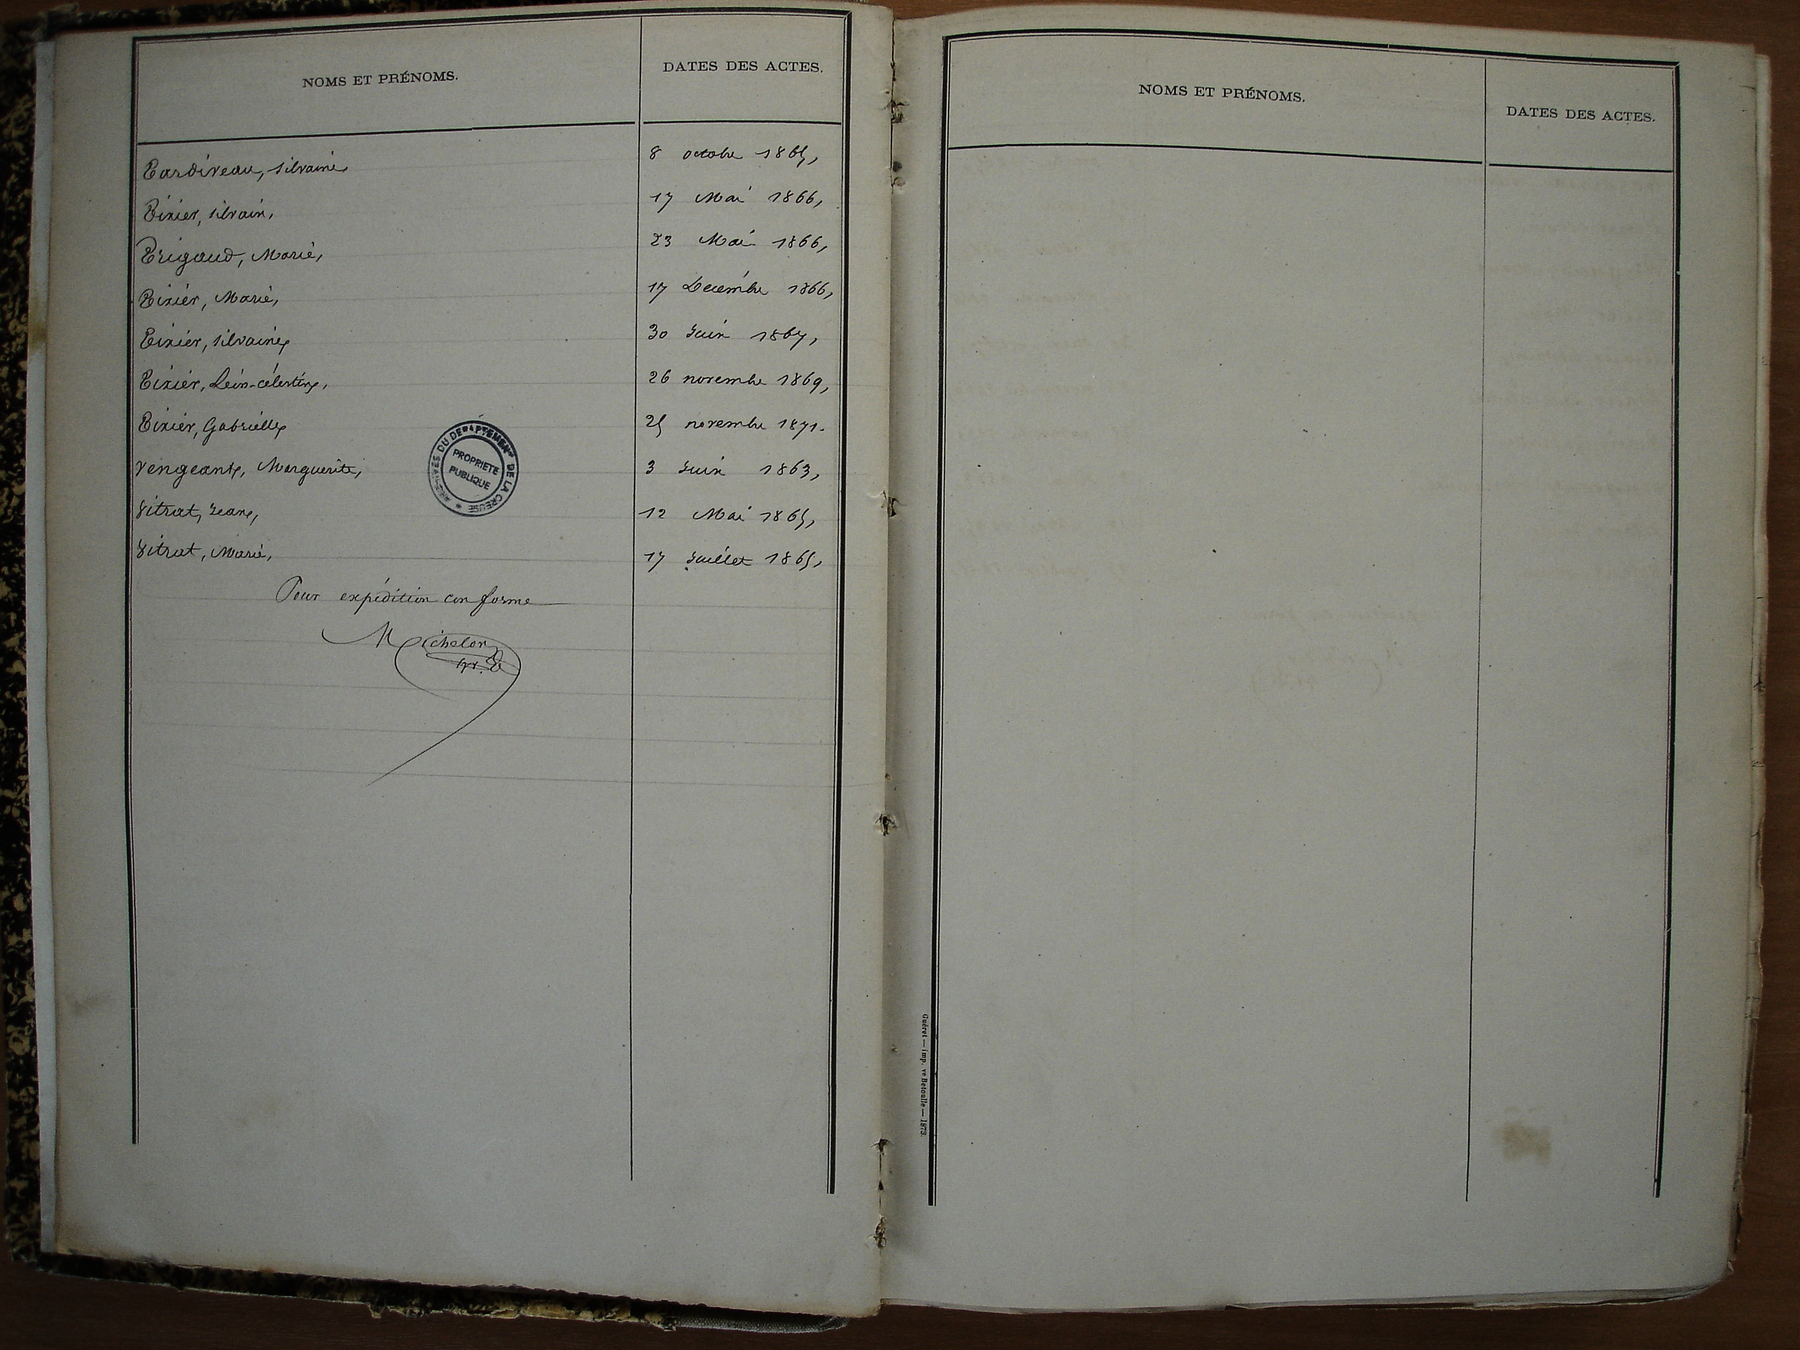 NOMS ET PRÉNOMS. DATES DES ACTES.
Tardiveau, Silvaine, 8 octobre 1865,
Tixier, Silvain, 17 Mai 1866,
Trigaud, Marie, 23 Mai 1866,
Tixier, Marie, 17 Décembre 1866,
Tixier, Silvaine, 30 Juin 1867,
Tixier, Léon-célestin, 26 novembre 1869,
Tixier, Gabrielle, 25 novembre 1871.
Vengeant, Marguerite, 3 Juin 1863,
Vitrat, Jean, 12 Mai 1865,
Vitrat, Marie, 17 Juillet 1865,
ARCHIVES DU DEPARTEMENT DE LA CREUSE
PROPRIETE
PUBLIQUE
Pour expédition conforme
Michelon
NOMS ET PRÉNOMS. DATES DES ACTES.
Guéret — imp. ve Betoulle — 1873.